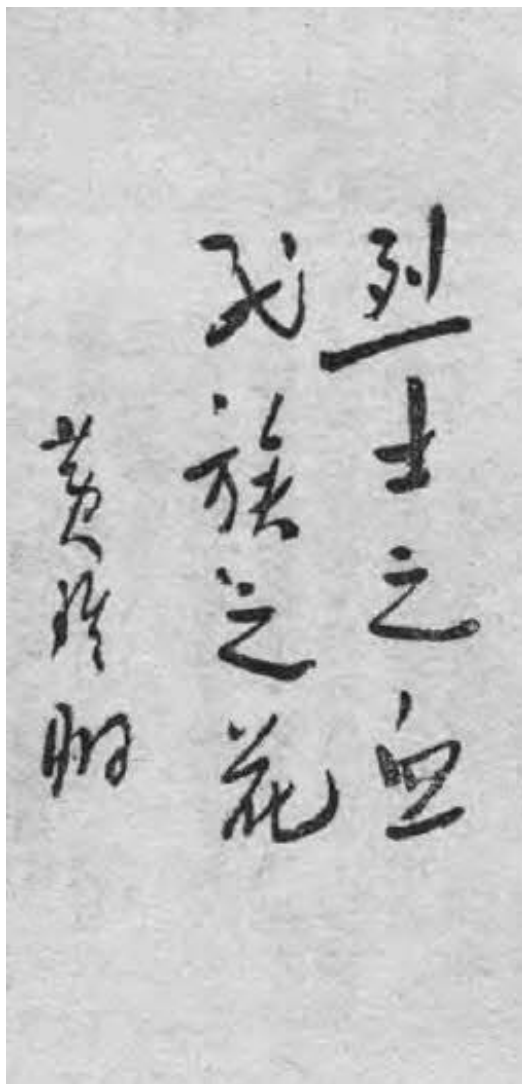 烈士之血
民族之花
黄琪翔